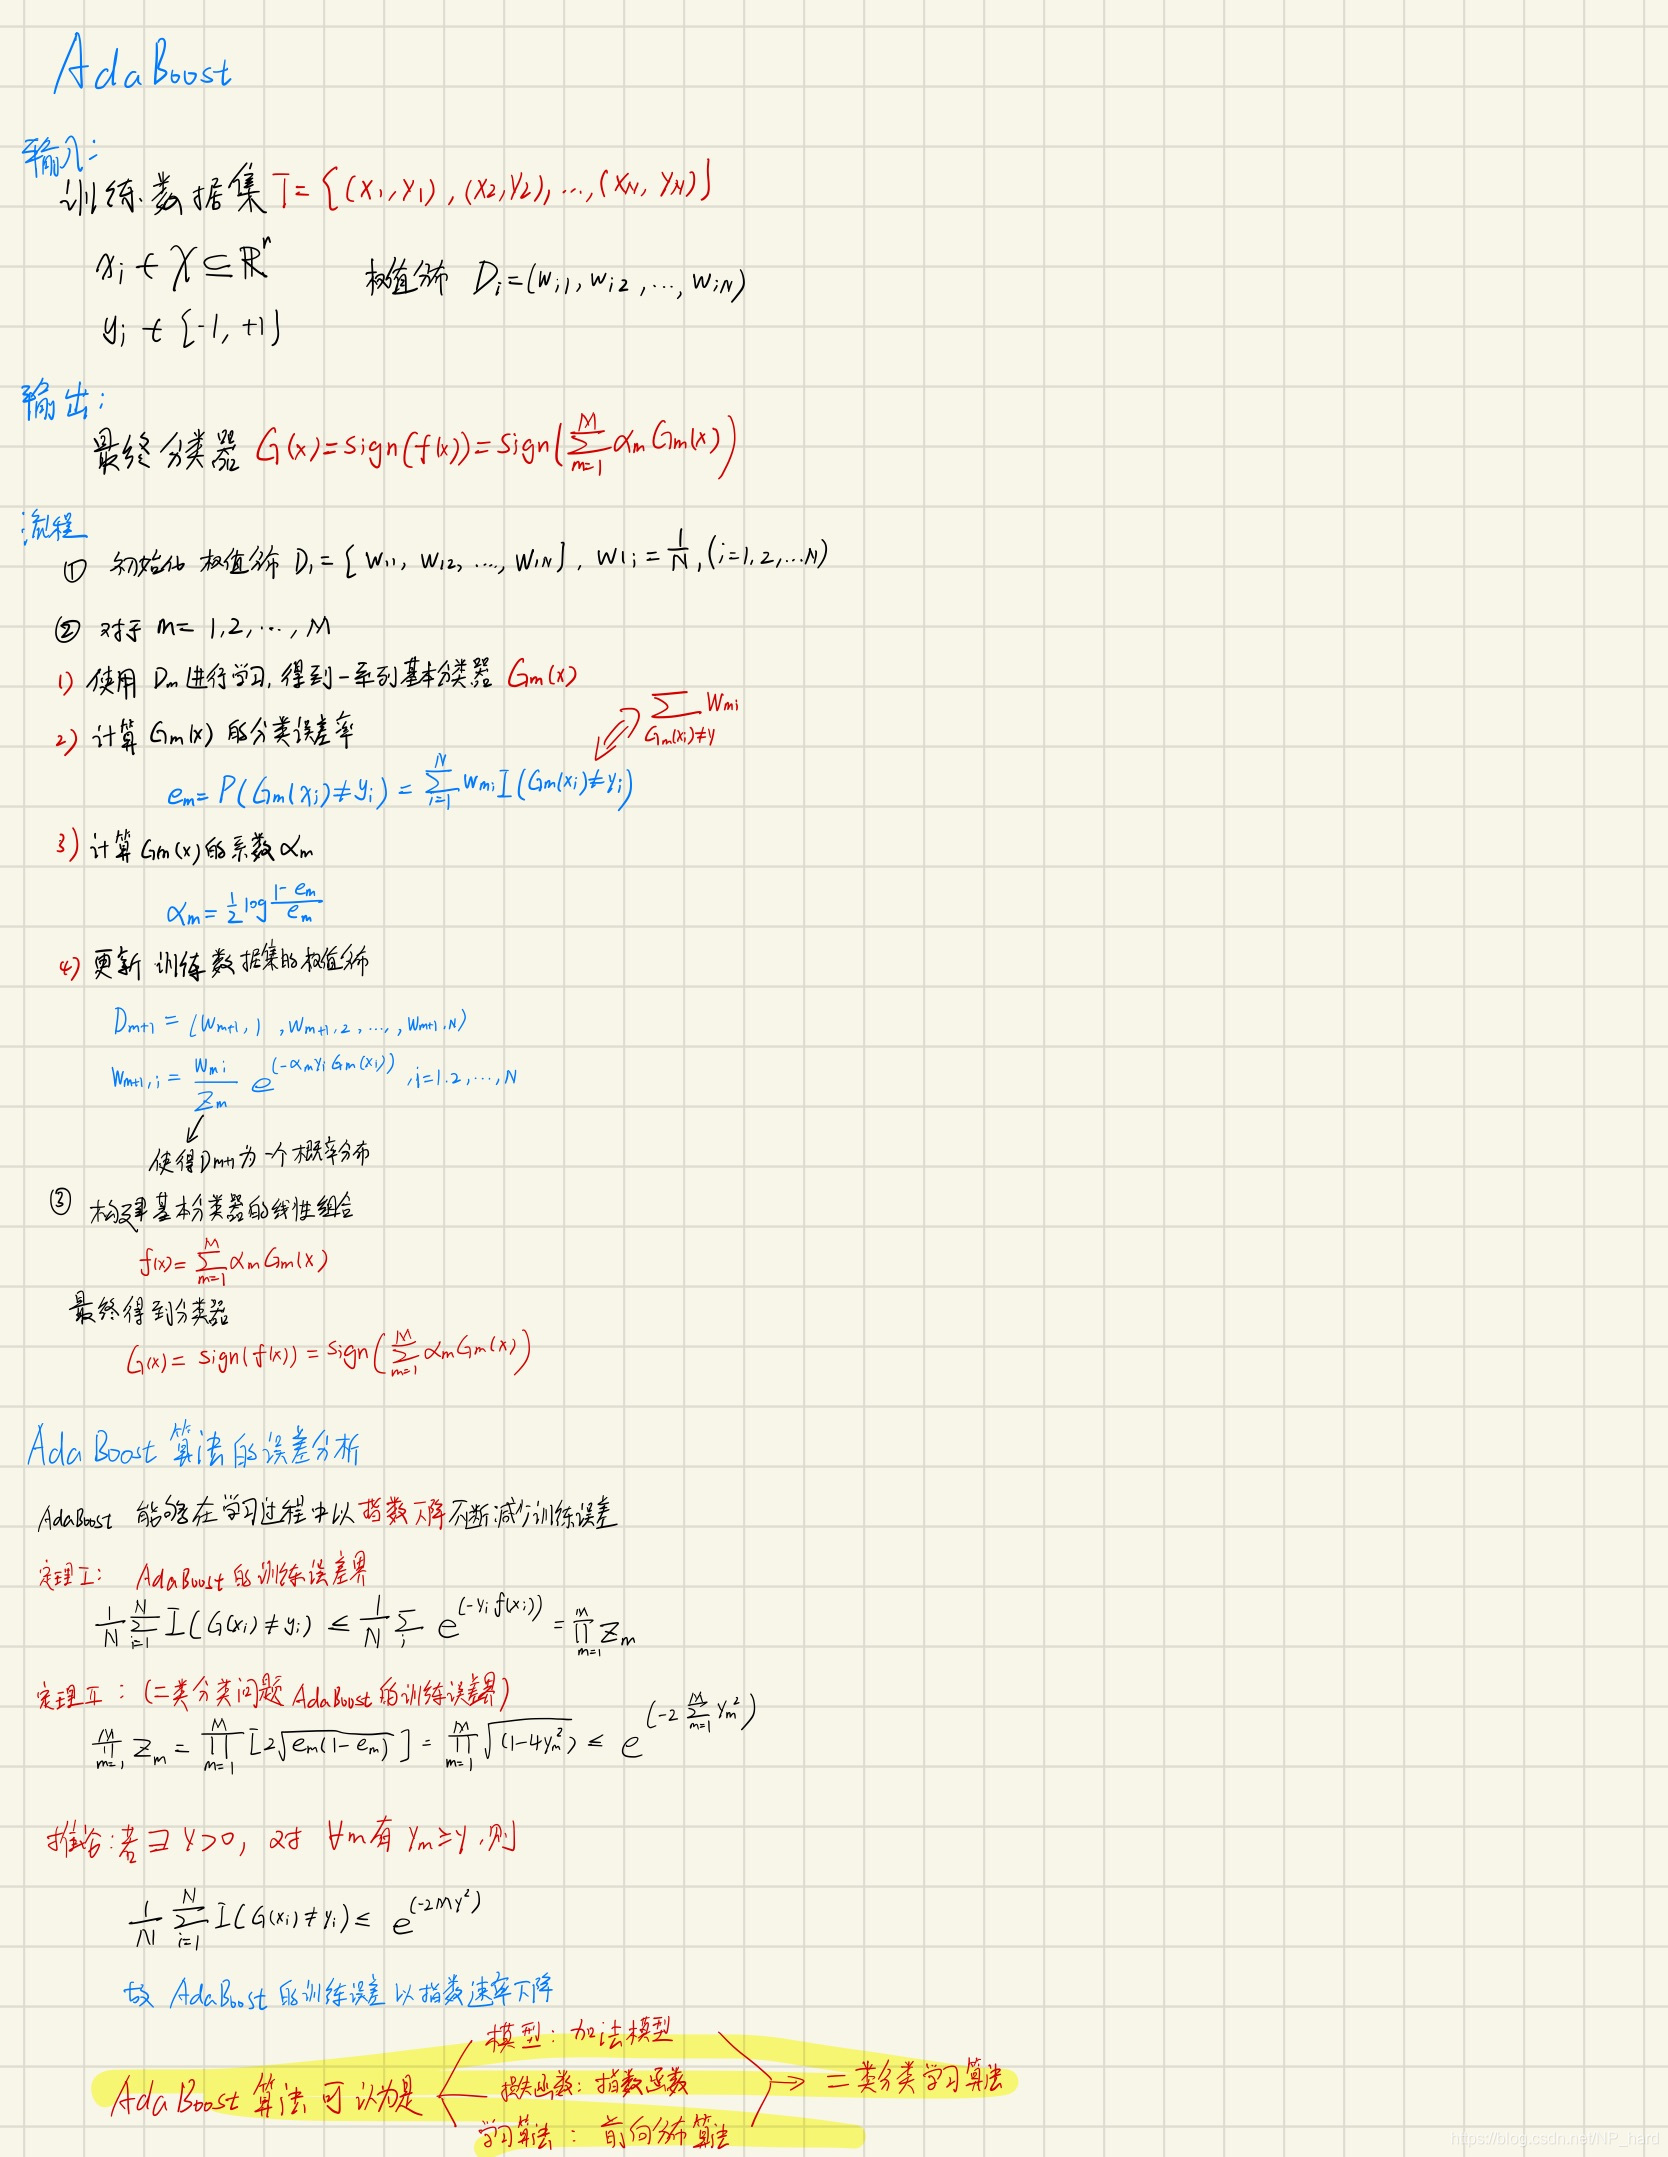 AdaBoost
输入:
训练数据集 T={(x₁,y₁),(x₂,y₂),...,(x_N,y_N)}
xᵢ ∈ χ ⊆ ℝⁿ
权值分布 Dᵢ=(wᵢ₁,wᵢ₂,...,w_iN)
yᵢ ∈ {-1,+1}
输出:
最终分类器 G(x)=sign(f(x))=sign(∑_{m=1}^{M} α_m G_m(x))
流程
① 初始化 权值分布 D₁={w₁₁,w₁₂,...,w_1N}, w₁ᵢ=1/N,(i=1,2,...N)
② 对于 m=1,2,...,M
1) 使用 D_m 进行学习,得到一系列基本分类器 G_m(x)
∑_{G_m(xᵢ)≠y} w_mi
2) 计算 G_m(x) 的分类误差率
e_m=P(G_m(xᵢ)≠yᵢ)=∑_{i=1}^{N} w_mi I(G_m(xᵢ)≠yᵢ)
3) 计算 G_m(x) 的系数 α_m
α_m=1/2 log (1-e_m)/e_m
4) 更新 训练数据集的权值分布
D_{m+1}=(w_{m+1,1},w_{m+1,2},...,w_{m+1,N})
w_{m+1,i}=w_mi/Z_m e^{(-α_m yᵢ G_m(xᵢ))},i=1.2,...,N
使得D_{m+1}为一个概率分布
③ 构建基本分类器的线性组合
f(x)=∑_{m=1}^{M} α_m G_m(x)
最终得到分类器
G(x)=sign(f(x))=sign(∑_{m=1}^{M} α_m G_m(x))
AdaBoost 算法的误差分析
AdaBoost 能够在学习过程中以指数下降不断减少训练误差
定理I: AdaBoost的训练误差界
1/N ∑_{i=1}^{N} I(G(xᵢ)≠yᵢ) ≤ 1/N ∑_i e^{(-yᵢf(xᵢ))} = ∏_{m=1}^{M} Z_m
定理II:(二类分类问题 AdaBoost的训练误差界)
∏_{m=1}^{M} Z_m = ∏_{m=1}^{M} [2√(e_m(1-e_m))] = ∏_{m=1}^{M} √(1-4γ_m²) ≤ e^{(-2∑_{m=1}^{M} γ_m²)}
推论:若∃γ>0,对 ∀m有 γ_m≥γ,则
1/N ∑_{i=1}^{N} I(G(xᵢ)≠yᵢ) ≤ e^{(-2Mγ²)}
故 AdaBoost 的训练误差以指数速率下降
AdaBoost 算法可认为是
模型: 加法模型
损失函数: 指数函数
学习算法: 前向分布算法
→ 二类分类学习算法
https://blog.csdn.net/NP_hard